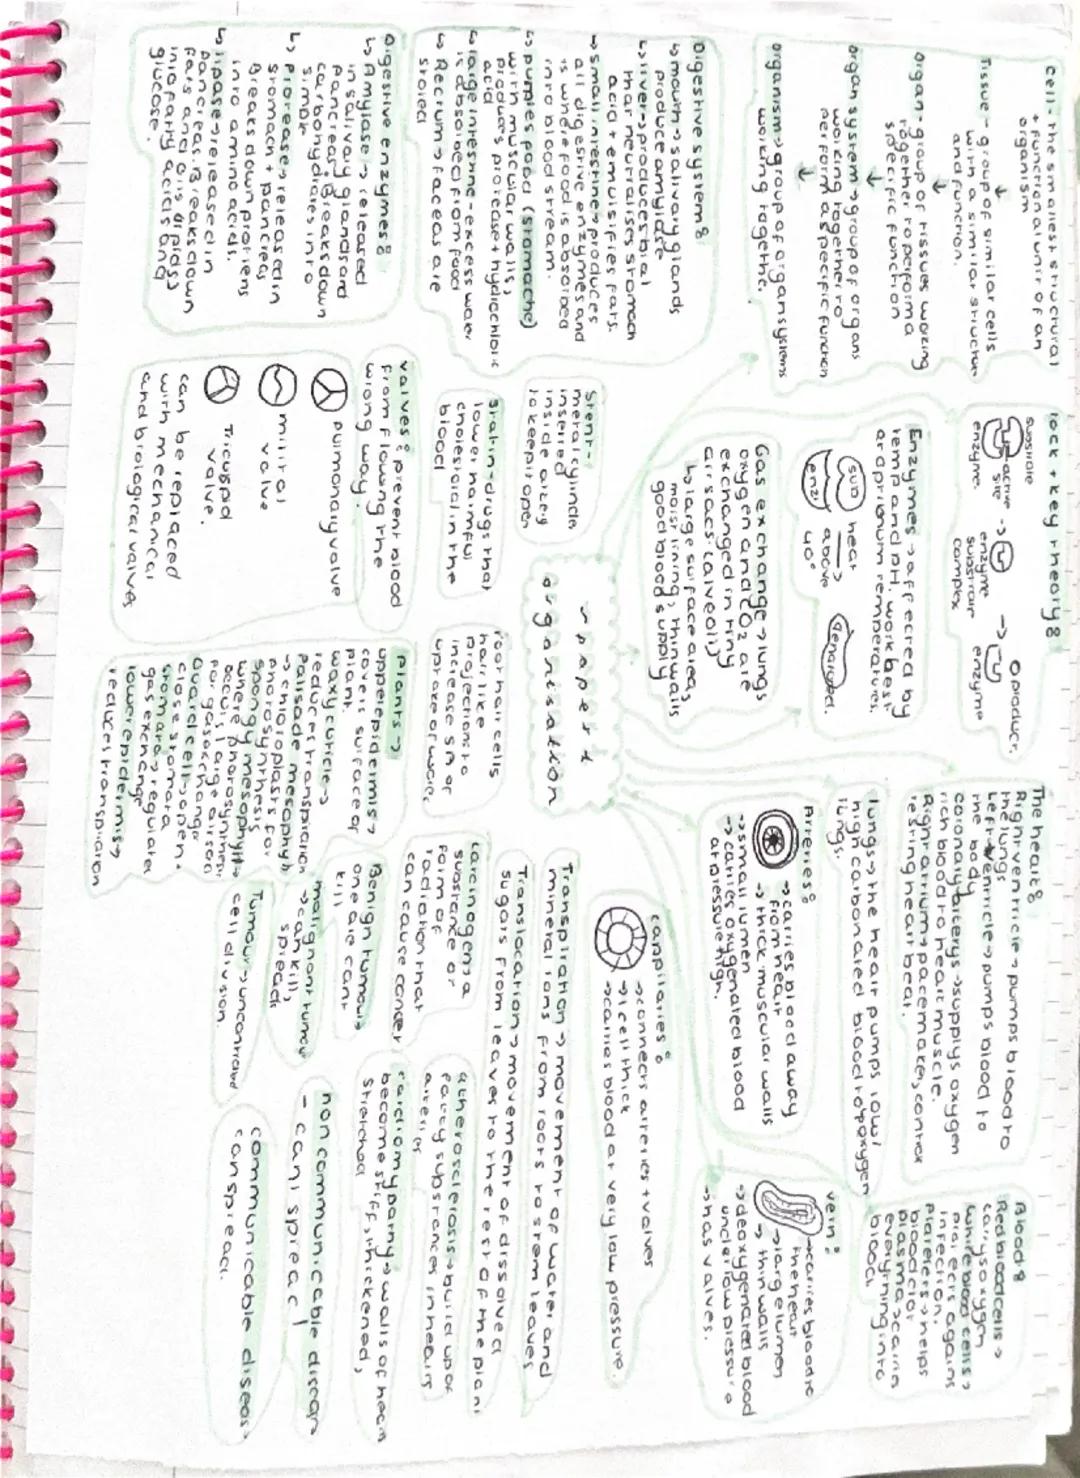 cell- the smallest structural
+ functional unit of an
organism
↓
Tissue- group of similar cells
with a similar structure
and function.
↓
organ- group of tissues working
together to perform a
specific function
↓
organ system → group of organs
working together to
perform a specific function
↓
organism → group of organ systems
working together.
Digestive system:
↳ mouth → salivary glands
produce amylase
↳ liver → produces bial
that neutralises stomach
acid + emulsifies fats.
→ small intestine → produces
all digestive enzymes and
is where food is absorbed
into blood stream.
↳ pumples food (stomache)
with muscular walls,
produces protease + hydrochloric
acid
↳ large intestine - excess water
is absorbed from food
↳ Rectum → faeces are
stored
Digestive enzymes:
↳ Amylase → released
in salivary gland and
pancreas. Breaks down
carbohydrates into
simple
↳ protease → released in
stomach + pancreas
Breaks down protiens
into amino acids.
↳ lipase → released in
pancreas. Breaks down
fats and oils (lipids)
into fatty acids and
glucose.
lock + key theory:
substrate
active site
enzyme
→ enzyme
substrate
complex
→ product
enzyme
Enzymes → affected by
temp and pH. work best
at optimum temperatures.
sub
enz
heat
→
above
40°
Denatured.
Gas exchange → lungs
oxygen and CO2 are
exchanged in tiny
air sacs: (alveoli)
↳ large surface area,
moist lining, thin walls
good blood supply
stent-
metal cylinder
inserted
inside artery
to keep it open
statin- drugs that
lower harmful
cholesterol in the
blood
valves: prevent blood
from flowing the
wrong way.
pulmonary valve
mitral
valve
Tricuspid
valve.
can be replaced
with mechanical
and biological valves
paper 1
organisation
root hair cells
hair like
projections to
increase SA or
uptake of water
plants →
upper epidermis →
covers surface of
plant.
waxy cuticle →
reduces transpiration
Palisade mesophyll
→ chloroplasts for
photosynthesis
spongy mesophyll →
where photosynthesis
occurs, large air sacs
for gas exchange
Guard cell → open +
close stomata
stomata → regulates
gas exchange
lower epidermis →
reduces transpiration
The heart:
Right ventricle → pumps blood to
the lungs
Left ventricle → pumps blood to
the body
coronary arterys → supplys oxygen
rich blood to heart muscle.
Right atrium → pacemaker, control
resting heart beat.
lungs → the heart pumps low/
high carbonated blood to oxygen
lungs.
Blood:
Red blood cells →
carrys oxygen
White blood cells →
protects agains
infection.
platelets → helps
blood clot
plasma → carries
everything into
blood
Arteries:
→ carries blood away
from heart
→ thick muscular walls
→ small lumen
→ carries oxygenated blood
at pressure high.
vein:
→ carries blood to
the heart
→ large lumen
→ thin walls
→ deoxygenated blood
under low pressure
→ has valves.
capilaries:
→ connects arteries + valves
→ 1 cell thick
→ carries blood at very low pressure.
Transpiration → movement of water and
mineral ions from roots to stem leaves
Translocation → movement of dissolved
sugars from leaves to the rest of the plant
carcinogens a
substance or
form of
radiation that
can cause cancer
atherosclerosis → build up of
fatty substances in hearts
arteries
Benign tumours
one are cant
kill
malignant tumour
→ can kill,
spreads
Tumour → uncontrolled
cell division.
cardiomypathy → walls of heart
become stiff, thickened,
stretched
non communicable disease
- cant spread
communicable disease
can spread.